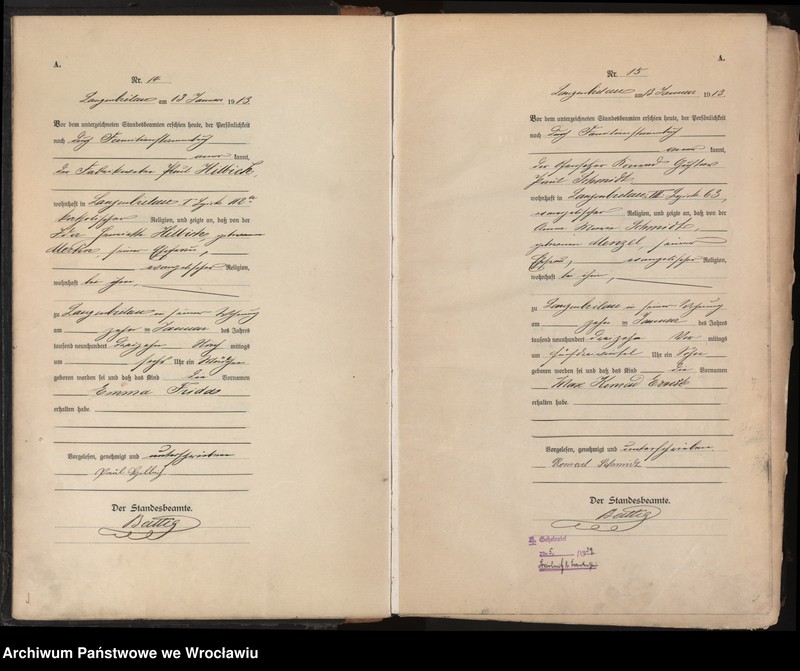 A.
Nr. 14
Langenbielau am 13 Januar 1913.
Vor dem unterzeichneten Standesbeamten erschien heute, der Persönlichkeit
nach durch Familienstammbuch
kannt,
der Fabrikweber Paul Hilbich,
wohnhaft in Langenbielau I Bezirk
katholischer Religion, und zeigte an, daß von der
Hilbich, geborenen
seiner Ehefrau,
evangelischer Religion,
wohnhaft bei ihm,
zu Langenbielau in seiner Wohnung
am zehn ten Januar des Jahres
tausend neunhundert dreizehn Nach mittags
um sechs Uhr ein Mädchen
geboren worden sei und daß das Kind die Vornamen
Emma Frida
erhalten habe.
Vorgelesen, genehmigt und unterschrieben
Paul
Der Standesbeamte.
Battig
A.
Nr. 15
Langenbielau am 13 Januar 1913.
Vor dem unterzeichneten Standesbeamten erschien heute, der Persönlichkeit
nach durch Familienstammbuch
kannt,
der Konrad Gustav
Paul Schmidt
wohnhaft in Langenbielau III Bezirk 63,
evangelischer Religion, und zeigte an, daß von der
Anna Schmidt,
geborenen Menzel, seiner
Ehefrau, evangelischer Religion,
wohnhaft bei ihm,
zu Langenbielau in seiner Wohnung
am zehn ten Januar des Jahres
tausend neunhundert dreizehn Vor mittags
um Uhr ein
geboren worden sei und daß das Kind die Vornamen
Max Konrad
erhalten habe.
Vorgelesen, genehmigt und unterschrieben
Konrad Schmidt
Der Standesbeamte.
Battig
Archiwum Państwowe we Wrocławiu